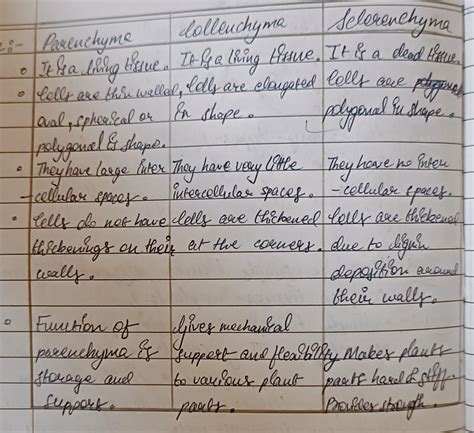 :- Parenchyma Collenchyma Sclerenchyma
It is a living tissue. It is a living tissue. It is a dead tissue.
Cells are thin walled, Cells are elongated Cells are polygonal
oval, spherical or in shape. polygonal in shape.
polygonal in shape.
They have large inter They have very little They have no inter
-cellular spaces. intercellular spaces. -cellular spaces.
Cells do not have Cells are thickened Cells are thickened
thickenings on their at the corners. due to lignin
walls. deposition around
their walls.
Function of Gives mechanical
parenchyma is support and flexibility Makes plants
storage and to various plant parts hard & stiff.
support. parts. Provides strength.